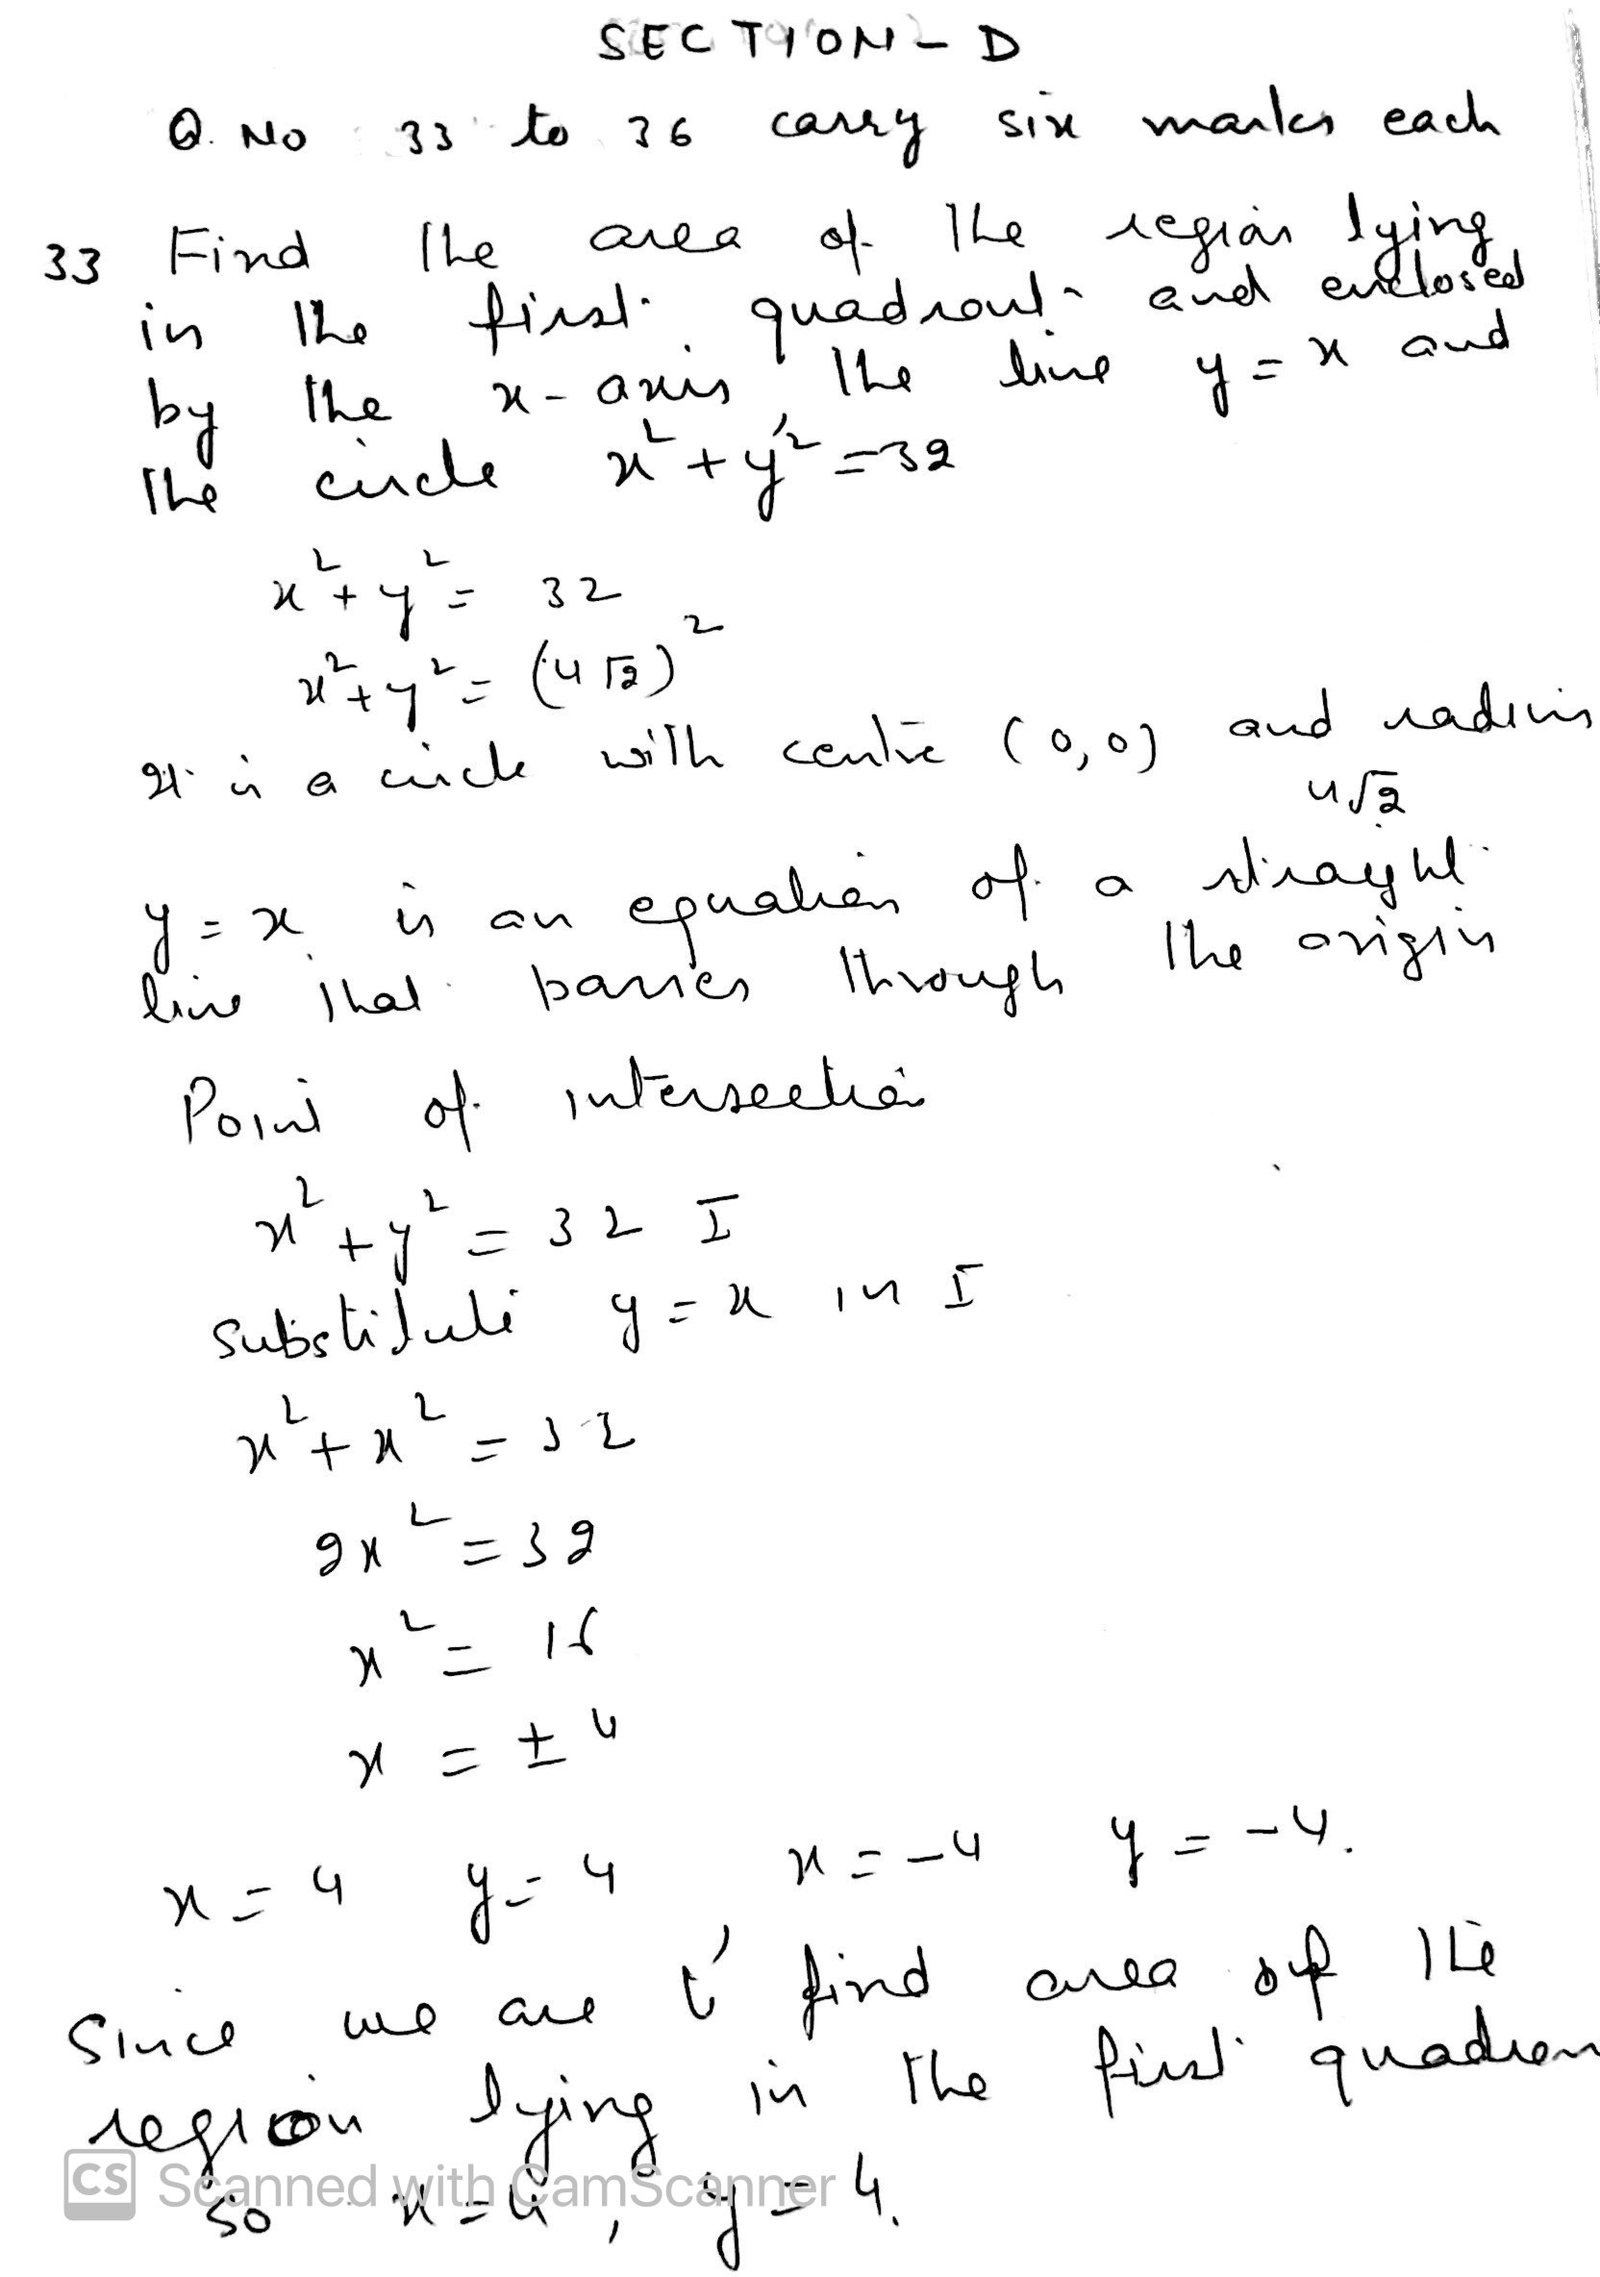 SECTION - D
Q. No 33 to 36 carry six marks each
33 Find the area of the region lying
in the first quadrant and enclosed
by the x-axis, the line y = x and
the circle x² + y² = 32
x² + y² = 32
x² + y² = (4√2)²
It is a circle with centre (0,0) and radius
4√2
y = x is an equation of a straight
line that passes through the origin
Point of intersection
x² + y² = 32 I
Substitute y = x in I
x² + x² = 32
2x² = 32
x² = 16
x = ± 4
x = 4 y = 4 x = -4 y = -4.
Since we are to find area of the
region lying in the first quadran
so x = 4, y = 4.
CS Scanned with CamScanner